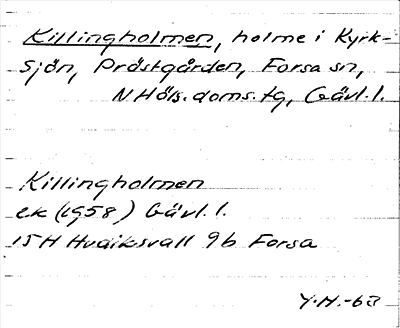 Killingholmen, holme i Kyrk-
sjön, Prästgården, Forsa sn,
N Häls. doms. tg, Gävl. l.
Killingholmen
ek (1958) Gävl. l.
15H Hudiksvall 9b Forsa
Y.H.-63